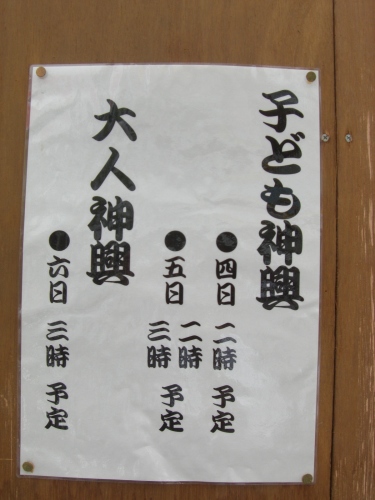 子ども神輿
●四日 二時 予定
●五日 二時 三時 予定
大人神輿
●六日 三時 予定